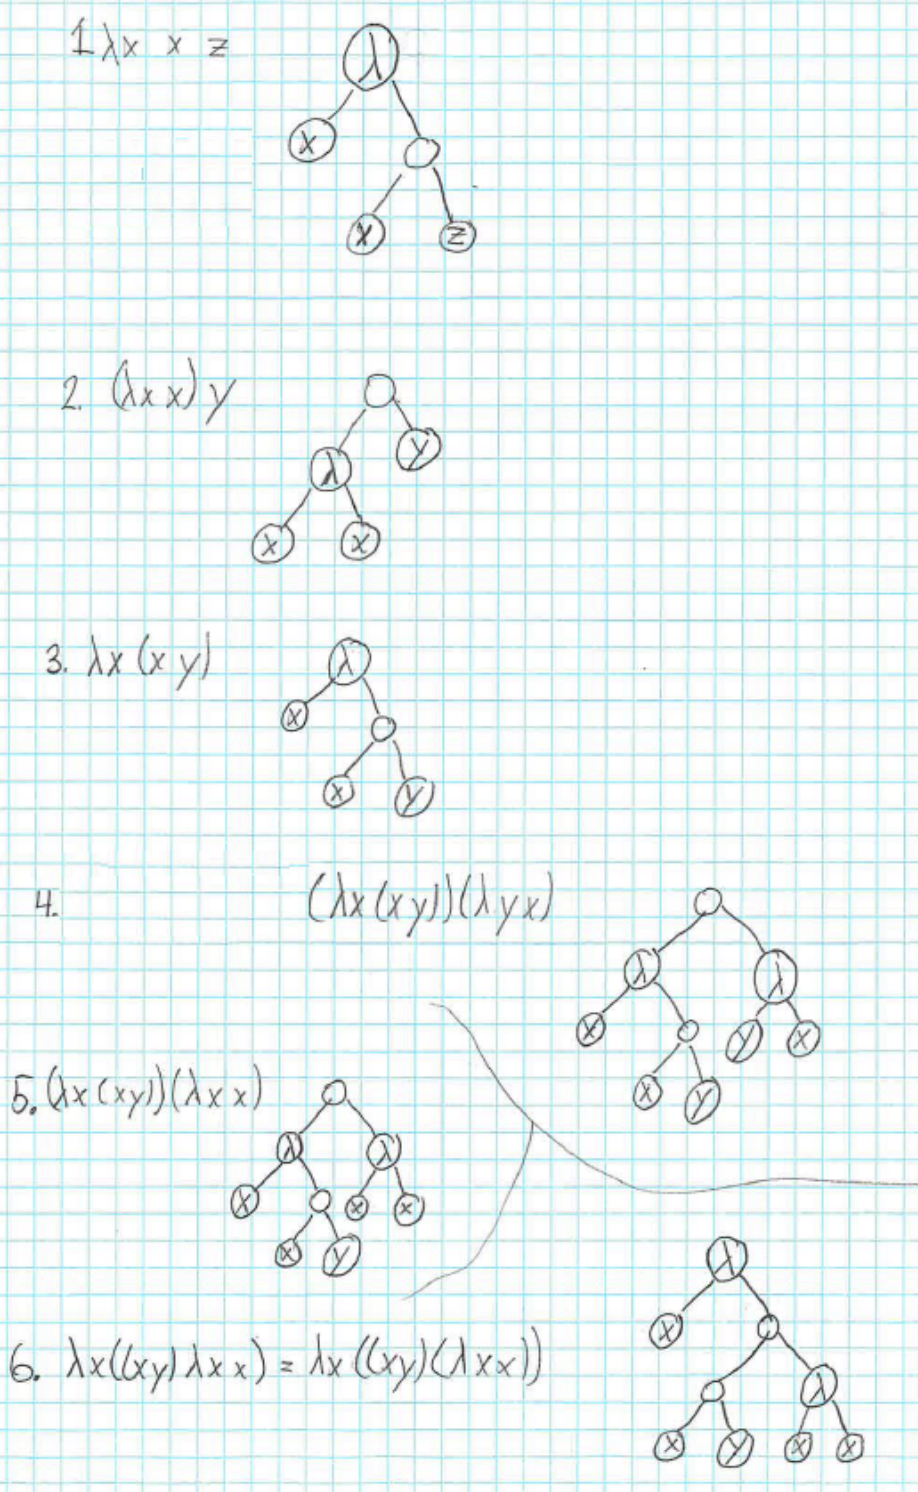 1 λx x z
λ
x
x z
2. (λx x) y
y
λ
x x
3. λx (x y)
λ
x
x y
4. (λx (x y))(λ y x)
λ λ
x y x
x y
5. (λx (x y))(λ x x)
λ λ
x x x
x y
6. λx((x y) λ x x) = λx ((x y) (λ x x))
λ
x
λ
x y x x